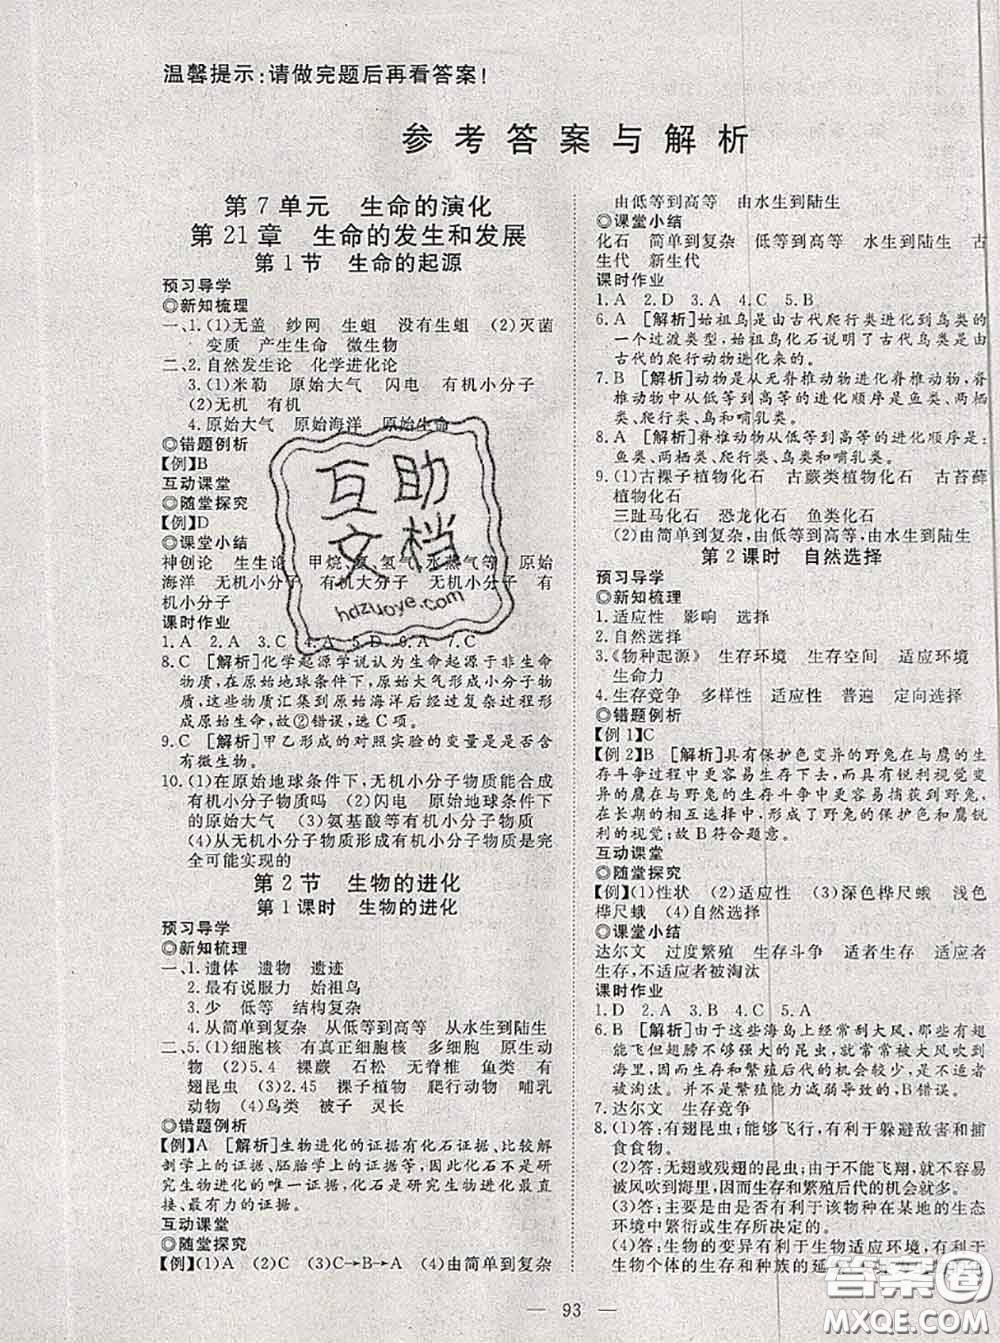 温馨提示:请做完题后再看答案!
参考答案与解析
第7单元 生命的演化
第21章 生命的发生和发展
第1节 生命的起源
预习导学
◎新知梳理
一、1.(1)无盖 纱网 生蛆 没有生蛆 (2)灭菌
变质 产生生命 微生物
二、2.自然发生论 化学进化论
3.(1)米勒 原始大气 闪电 有机小分子
(2)无机 有机
4.原始大气 原始海洋 原始生命
◎错题例析
【例】B
互动课堂
◎随堂探究
【例】D
◎课堂小结
神创论 生生论 甲烷、氨、氢气、水蒸气等 原始
海洋 无机小分子 有机大分子 无机小分子 有
机小分子
课时作业
1.A 2.A 3.C 4.A 5.A 6.A 7.C
8.C [解析]化学起源学说认为生命起源于非生命
物质,在原始地球条件下,原始大气形成有机小分子
物质,这些物质汇集到原始海洋后经过复杂过程形
成原始生命,故②错误,选C项。
9.C [解析]甲乙形成的对照实验的变量是是否含
有微生物。
10.(1)在原始地球条件下,无机小分子物质能合成
有机小分子物质吗 (2)闪电 原始地球条件下
的原始大气 (3)氨基酸等有机小分子物质
(4)从无机小分子物质形成有机小分子物质是完
全可能实现的
第2节 生物的进化
第1课时 生物的进化
预习导学
◎新知梳理
一、1.遗体 遗物 遗迹
2.最有说服力 始祖鸟
3.少 低等 结构复杂
4.从简单到复杂 从低等到高等 从水生到陆生
二、5.(1)细胞核 有真正细胞核 多细胞 原生动
物 (2)苔藓 裸蕨 石松 无脊椎 鱼类 有
翅昆虫 (3)2.45 裸子植物 爬行动物 哺乳
动物 (4)鸟类 被子 灵长
◎错题例析
【例】A [解析]生物进化的证据有化石证据、比较解
剖学上的证据、胚胎学上的证据等,化石不是研
究生物进化的唯一证据,化石是研究生物进化最直接、
最有力的证据。
互动课堂
◎随堂探究
【例】(1)A (2)C (3)C→B→A (4)由简单到复杂
由低等到高等 由水生到陆生
◎课堂小结
化石 简单到复杂 低等到高等 水生到陆生 古
生代 新生代
课时作业
1.A 2.D 3.A 4.C 5.B
6.A [解析]始祖鸟是由古代爬行类进化到鸟类的
一个过渡类型,始祖鸟化石说明了鸟类可能是由
古代的爬行动物进化来的。
7.B [解析]动物是从无脊椎动物进化脊椎动物,脊
椎动物中从低等到高等的进化顺序是鱼类、两栖
类、爬行类、鸟和哺乳类。
8.A [解析]脊椎动物从低等到高等的进化顺序是:
鱼类、两栖类、爬行类、鸟和哺乳类。
9.(1)古裸子植物化石 古蕨类植物化石 古苔藓
植物化石
三趾马化石 恐龙化石 鱼类化石
(2)由简单到复杂,由低等到高等,由水生到陆生
第2课时 自然选择
预习导学
◎新知梳理
1.适应性 影响 选择
2.自然选择
3.《物种起源》 生存环境 生存空间 适应环境
生命力
4.生存竞争 多样性 适应性 普遍 定向选择
◎错题例析
【例1】C
【例2】B [解析]具有保护色变异的野兔在与鹰的生
存斗争过程中更易生存下去,而具有锐利视觉变异
的鹰,在与野兔的生存斗争中更易捕捉到野兔,
在长期的相互选择中,形成了野兔的保护色和鹰锐
利的视觉;故B符合题意。
互动课堂
◎随堂探究
【例】(1)性状 (2)适应性 (3)深色桦尺蛾 浅色
桦尺蛾 (4)自然选择
◎课堂小结
达尔文 过度繁殖 生存斗争 适者生存 适者生
存,不适应者被淘汰
课时作业
1.D 2.A 3.D 4.C 5.A
6.B [解析]由于这些海岛上经常刮大风,那些有翅
能飞但翅膀不够强大的昆虫,就常常被大风吹到
海里,因而生存和繁殖后代的机会较少,更容易
被淘汰。并不是繁殖能力减弱导致的,B错误。
7.达尔文 生存竞争
8.(1)答:有翅昆虫;能够飞行,有利于躲避敌害和捕
食食物。
(2)答:无翅或残翅的昆虫;由于不能飞翔,就不容易
被风吹到海里,因而生存和繁殖后代的机会就多。
(3)答:主要是由是否有利于该物种在某地的生态
环境中繁衍或生存所决定的。
(4)答:生物的变异有利于生物适应环境,有利于
生物个体的生存和种族的延
93
互助文档
hdzuoye.com
答案圈
MXQE.COM